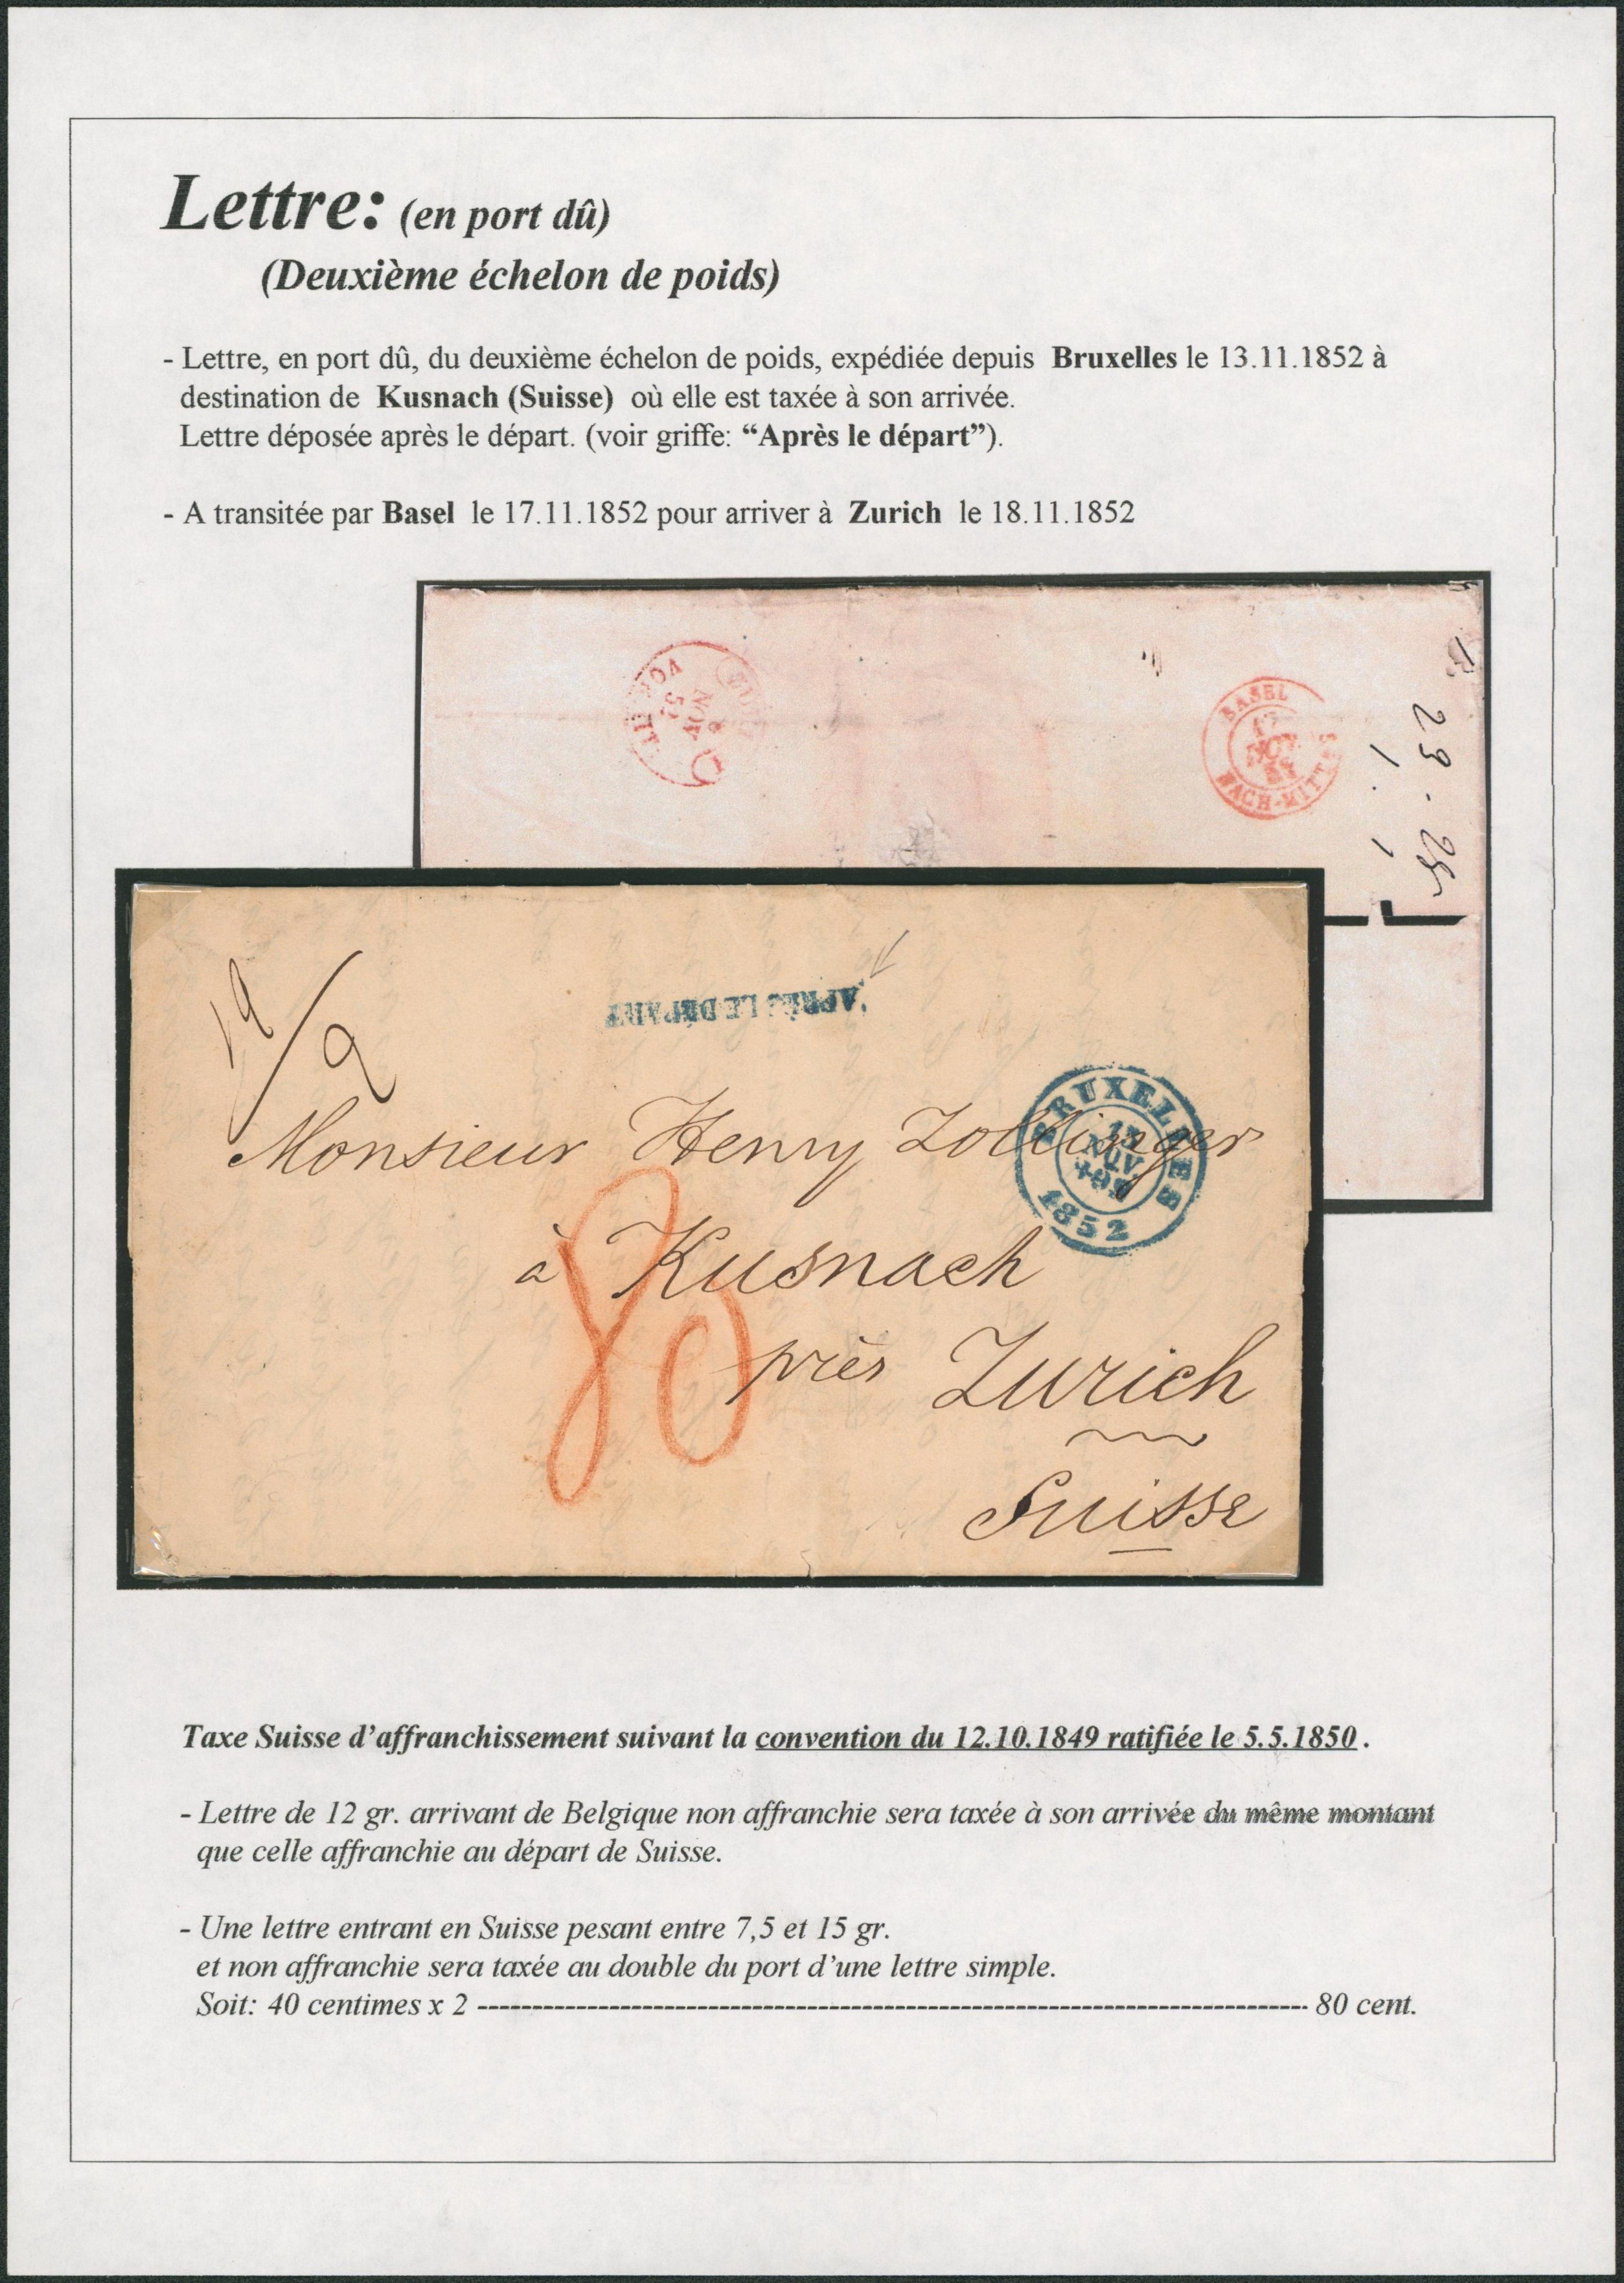 Lettre: (en port dû)
(Deuxième échelon de poids)
- Lettre, en port dû, du deuxième échelon de poids, expédiée depuis Bruxelles le 13.11.1852 à
destination de Kusnach (Suisse) où elle est taxée à son arrivée.
Lettre déposée après le départ. (voir griffe: “Après le départ”).
- A transitée par Basel le 17.11.1852 pour arriver à Zurich le 18.11.1852
BASEL
NOV
NACH-MITT
NOV
APRÈS LE DÉPART
BRUXELLES
13
NOV
1852
Monsieur Henry Zollinger
à Kusnach
80
près Zurich
Suisse
Taxe Suisse d’affranchissement suivant la convention du 12.10.1849 ratifiée le 5.5.1850.
- Lettre de 12 gr. arrivant de Belgique non affranchie sera taxée à son arrivée du même montant
que celle affranchie au départ de Suisse.
- Une lettre entrant en Suisse pesant entre 7,5 et 15 gr.
et non affranchie sera taxée au double du port d’une lettre simple.
Soit: 40 centimes x 2 ---------------------------------------------------------------------------- 80 cent.